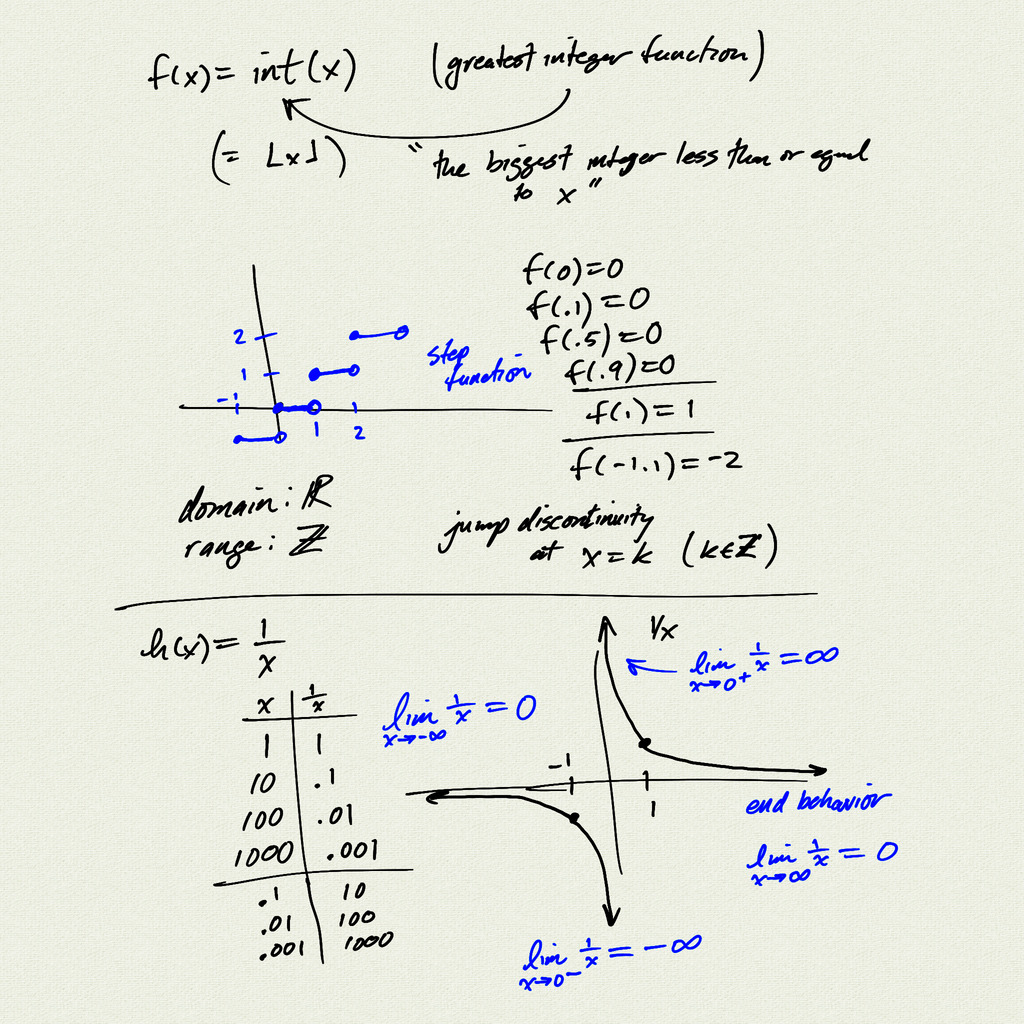 f(x) = int(x) (greatest integer function)
(= ⌊x⌋) "the biggest integer less than or equal
to x"
f(0)=0
f(.1)=0
f(.5)=0
f(.9)=0
f(1)=1
f(-1.1)=-2
2
1
-1
1 2
step
function
domain: ℝ
range: ℤ
jump discontinuity
at x=k (k∈ℤ)
h(x) = 1/x
x 1/x
1 1
10 .1
100 .01
1000 .001
.1 10
.01 100
.001 1000
lim x→-∞ 1/x = 0
1/x
lim x→0+ 1/x = ∞
-1
1
end behavior
lim x→∞ 1/x = 0
lim x→0- 1/x = -∞